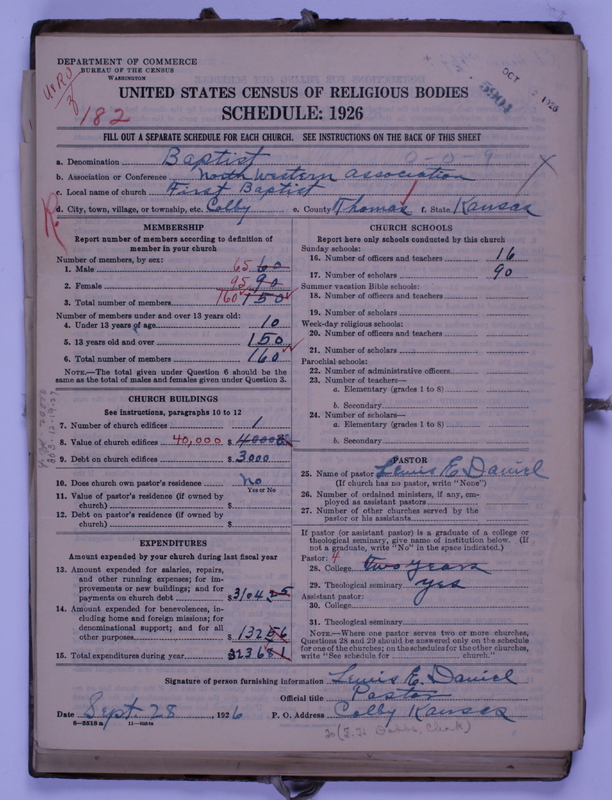 DEPARTMENT OF COMMERCE
BUREAU OF THE CENSUS
WASHINGTON
182
OCT 2 1926
5901
UNITED STATES CENSUS OF RELIGIOUS BODIES
SCHEDULE: 1926
FILL OUT A SEPARATE SCHEDULE FOR EACH CHURCH. SEE INSTRUCTIONS ON THE BACK OF THIS SHEET
a. Denomination Baptist 0-0-9
b. Association or Conference North Western Association
c. Local name of church First Baptist
d. City, town, village, or township, etc. Colby e. County Thomas f. State Kansas
MEMBERSHIP
Report number of members according to definition of
member in your church
Number of members, by sex:
1. Male 65 60
2. Female 95 90
3. Total number of members 160 150
Number of members under and over 13 years old:
4. Under 13 years of age 10
5. 13 years old and over 150
6. Total number of members 160
NOTE.—The total given under Question 6 should be the
same as the total of males and females given under Question 3.
CHURCH BUILDINGS
See instructions, paragraphs 10 to 12
7. Number of church edifices 1
8. Value of church edifices 40,000 $
9. Debt on church edifices $ 3000
10. Does church own pastor's residence No
Yes or No
11. Value of pastor's residence (if owned by
church) $
12. Debt on pastor's residence (if owned by
church) $
EXPENDITURES
Amount expended by your church during last fiscal year
13. Amount expended for salaries, repairs,
and other running expenses; for im-
provements or new buildings; and for
payments on church debt $ 3104 25
14. Amount expended for benevolences, in-
cluding home and foreign missions; for
denominational support; and for all
other purposes $ 132 56
15. Total expenditures during year 3236 81
CHURCH SCHOOLS
Report here only schools conducted by this church
Sunday schools:
16. Number of officers and teachers 16
17. Number of scholars 90
Summer vacation Bible schools:
18. Number of officers and teachers
19. Number of scholars
Week-day religious schools:
20. Number of officers and teachers
21. Number of scholars
Parochial schools:
22. Number of administrative officers
23. Number of teachers—
a. Elementary (grades 1 to 8)
b. Secondary
24. Number of scholars—
a. Elementary (grades 1 to 8)
b. Secondary
PASTOR
25. Name of pastor Lewis E. Daniel
(If church has no pastor, write "None")
26. Number of ordained ministers, if any, em-
ployed as assistant pastors
27. Number of other churches served by the
pastor or his assistants
If pastor (or assistant pastor) is a graduate of a college or
theological seminary, give name of institution below. (If
not a graduate, write "No" in the space indicated.)
Pastor: 4
28. College two years
29. Theological seminary yes
Assistant pastor:
30. College
31. Theological seminary
NOTE.—Where one pastor serves two or more churches,
Questions 28 and 29 should be answered only on the schedule
for one of the churches; on the schedules for the other churches,
write "See schedule for church."
Signature of person furnishing information Lewis E. Daniel
Official title Pastor
Date Sept. 28, 1926 P. O. Address Colby Kansas
8-5518 a